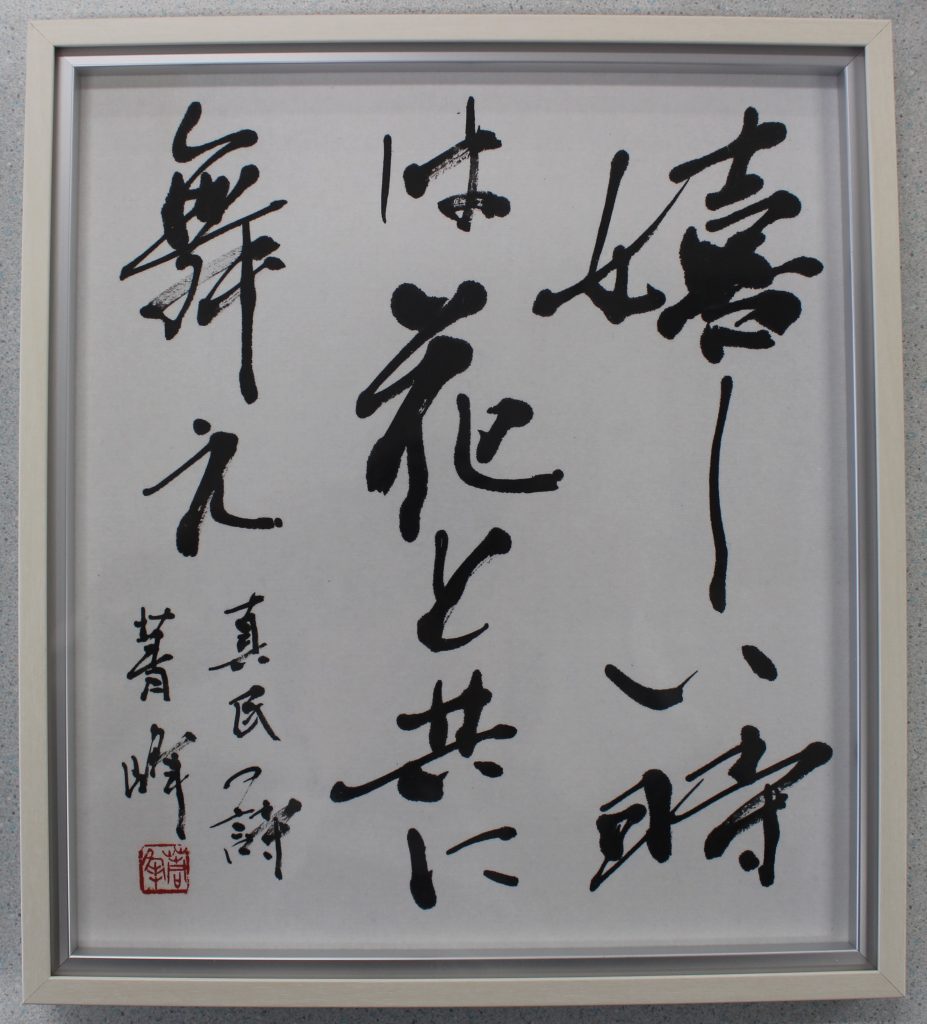 嬉しい時
は花と共に
舞え
真民の詩
菁峰